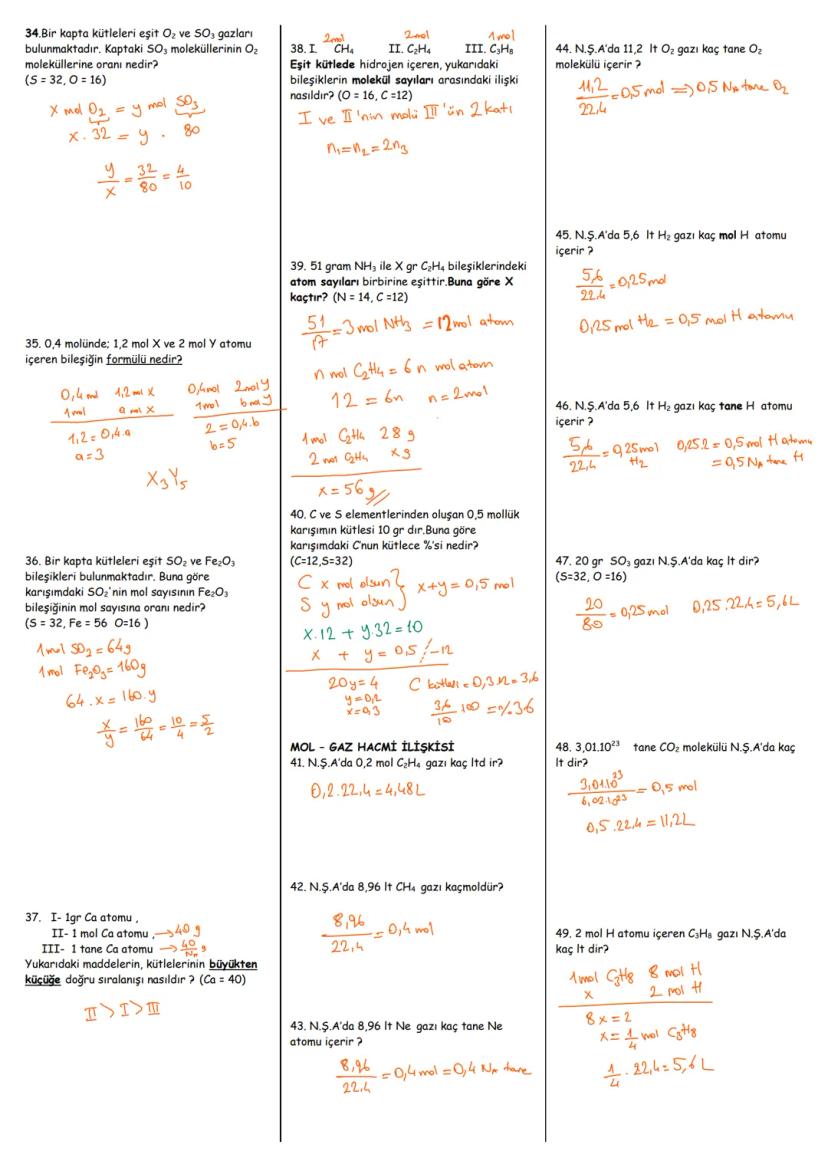 34.Bir kapta kütleleri eşit O₂ ve SO₃ gazları
bulunmaktadır. Kaptaki SO₃ moleküllerinin O₂
moleküllerine oranı nedir?
(S = 32, O = 16)
x mol O₂ = y mol SO₃
x . 32 = y . 80
y/x = 32/80 = 4/10
35. 0,4 molünde; 1,2 mol X ve 2 mol Y atomu
içeren bileşiğin formülü nedir?
0,4 mol 1,2 mol X
1 mol a mol X
1,2 = 0,4.a
a=3
0,4mol 2molY
1mol b mol Y
2 = 0,4.b
b=5
X₃Y₅
36. Bir kapta kütleleri eşit SO₂ ve Fe₂O₃
bileşikleri bulunmaktadır. Buna göre
karışımdaki SO₂'nin mol sayısının Fe₂O₃
bileşiğinin mol sayısına oranı nedir?
(S = 32, Fe = 56 O=16 )
1mol SO₂ = 64g
1mol Fe₂O₃ = 160g
64.x = 160.y
x/y = 160/64 = 10/4 = 5/2
37. I- 1gr Ca atomu ,
II- 1 mol Ca atomu , → 40 g
III- 1 tane Ca atomu → 40/Nₐ g
Yukarıdaki maddelerin, kütlelerinin büyükten
küçüğe doğru sıralanışı nasıldır ? (Ca = 40)
II > I > III
2mol 2mol 1mol
38. I. CH₄ II. C₂H₄ III. C₃H₈
Eşit kütlede hidrojen içeren, yukarıdaki
bileşiklerin molekül sayıları arasındaki ilişki
nasıldır? (O = 16, C =12)
I ve II'nin molü III'ün 2 katı
n₁=n₂=2n₃
39. 51 gram NH₃ ile X gr C₂H₄ bileşiklerindeki
atom sayıları birbirine eşittir.Buna göre X
kaçtır? (N = 14, C =12)
51/17 = 3mol NH₃ = 12mol atom
n mol C₂H₄ = 6n mol atom
12 = 6n n=2mol
1mol C₂H₄ 28 g
2 mol C₂H₄ x g
x=56g
40. C ve S elementlerinden oluşan 0,5 mollük
karışımın kütlesi 10 gr dır.Buna göre
karışımdaki C'nun kütlece %'si nedir?
(C=12,S=32)
C x mol olsun } x+y=0,5 mol
S y mol olsun
x.12 + y.32=10
x + y = 0,5 /-12
20y=4
y=0,2
x=0,3
C kütlesi = 0,3.12=3,6
3,6/10 100 = %36
MOL – GAZ HACMİ İLİŞKİSİ
41. N.Ş.A'da 0,2 mol C₂H₄ gazı kaç ltd ir?
0,2.22,4=4,48L
42. N.Ş.A'da 8,96 lt CH₄ gazı kaçmoldür?
8,96/22,4 = 0,4 mol
43. N.Ş.A'da 8,96 lt Ne gazı kaç tane Ne
atomu içerir ?
8,96/22,4 = 0,4mol = 0,4 Nₐ tane
44. N.Ş.A'da 11,2 lt O₂ gazı kaç tane O₂
molekülü içerir ?
11,2/22,4 = 0,5mol ⇒ 0,5 Nₐ tane O₂
45. N.Ş.A'da 5,6 lt H₂ gazı kaç mol H atomu
içerir ?
5,6/22,4 = 0,25mol
0,25 mol H₂ = 0,5 mol H atomu
46. N.Ş.A'da 5,6 lt H₂ gazı kaç tane H atomu
içerir ?
5,6/22,4 = 0,25mol H₂ 0,25.2 = 0,5mol H atomu
= 0,5 Nₐ tane H
47. 20 gr SO₃ gazı N.Ş.A'da kaç lt dir?
(S=32, O =16)
20/80 = 0,25mol 0,25.22,4=5,6L
48. 3,01.10²³ tane CO₂ molekülü N.Ş.A'da kaç
lt dir?
3,01.10²³/6,02.10²³ = 0,5 mol
0,5.22,4 = 11,2L
49. 2 mol H atomu içeren C₃H₈ gazı N.Ş.A'da
kaç lt dir?
1mol C₃H₈ 8 mol H
x 2 mol H
8x=2
x= 1/4 mol C₃H₈
1/4 . 22,4=5,6L